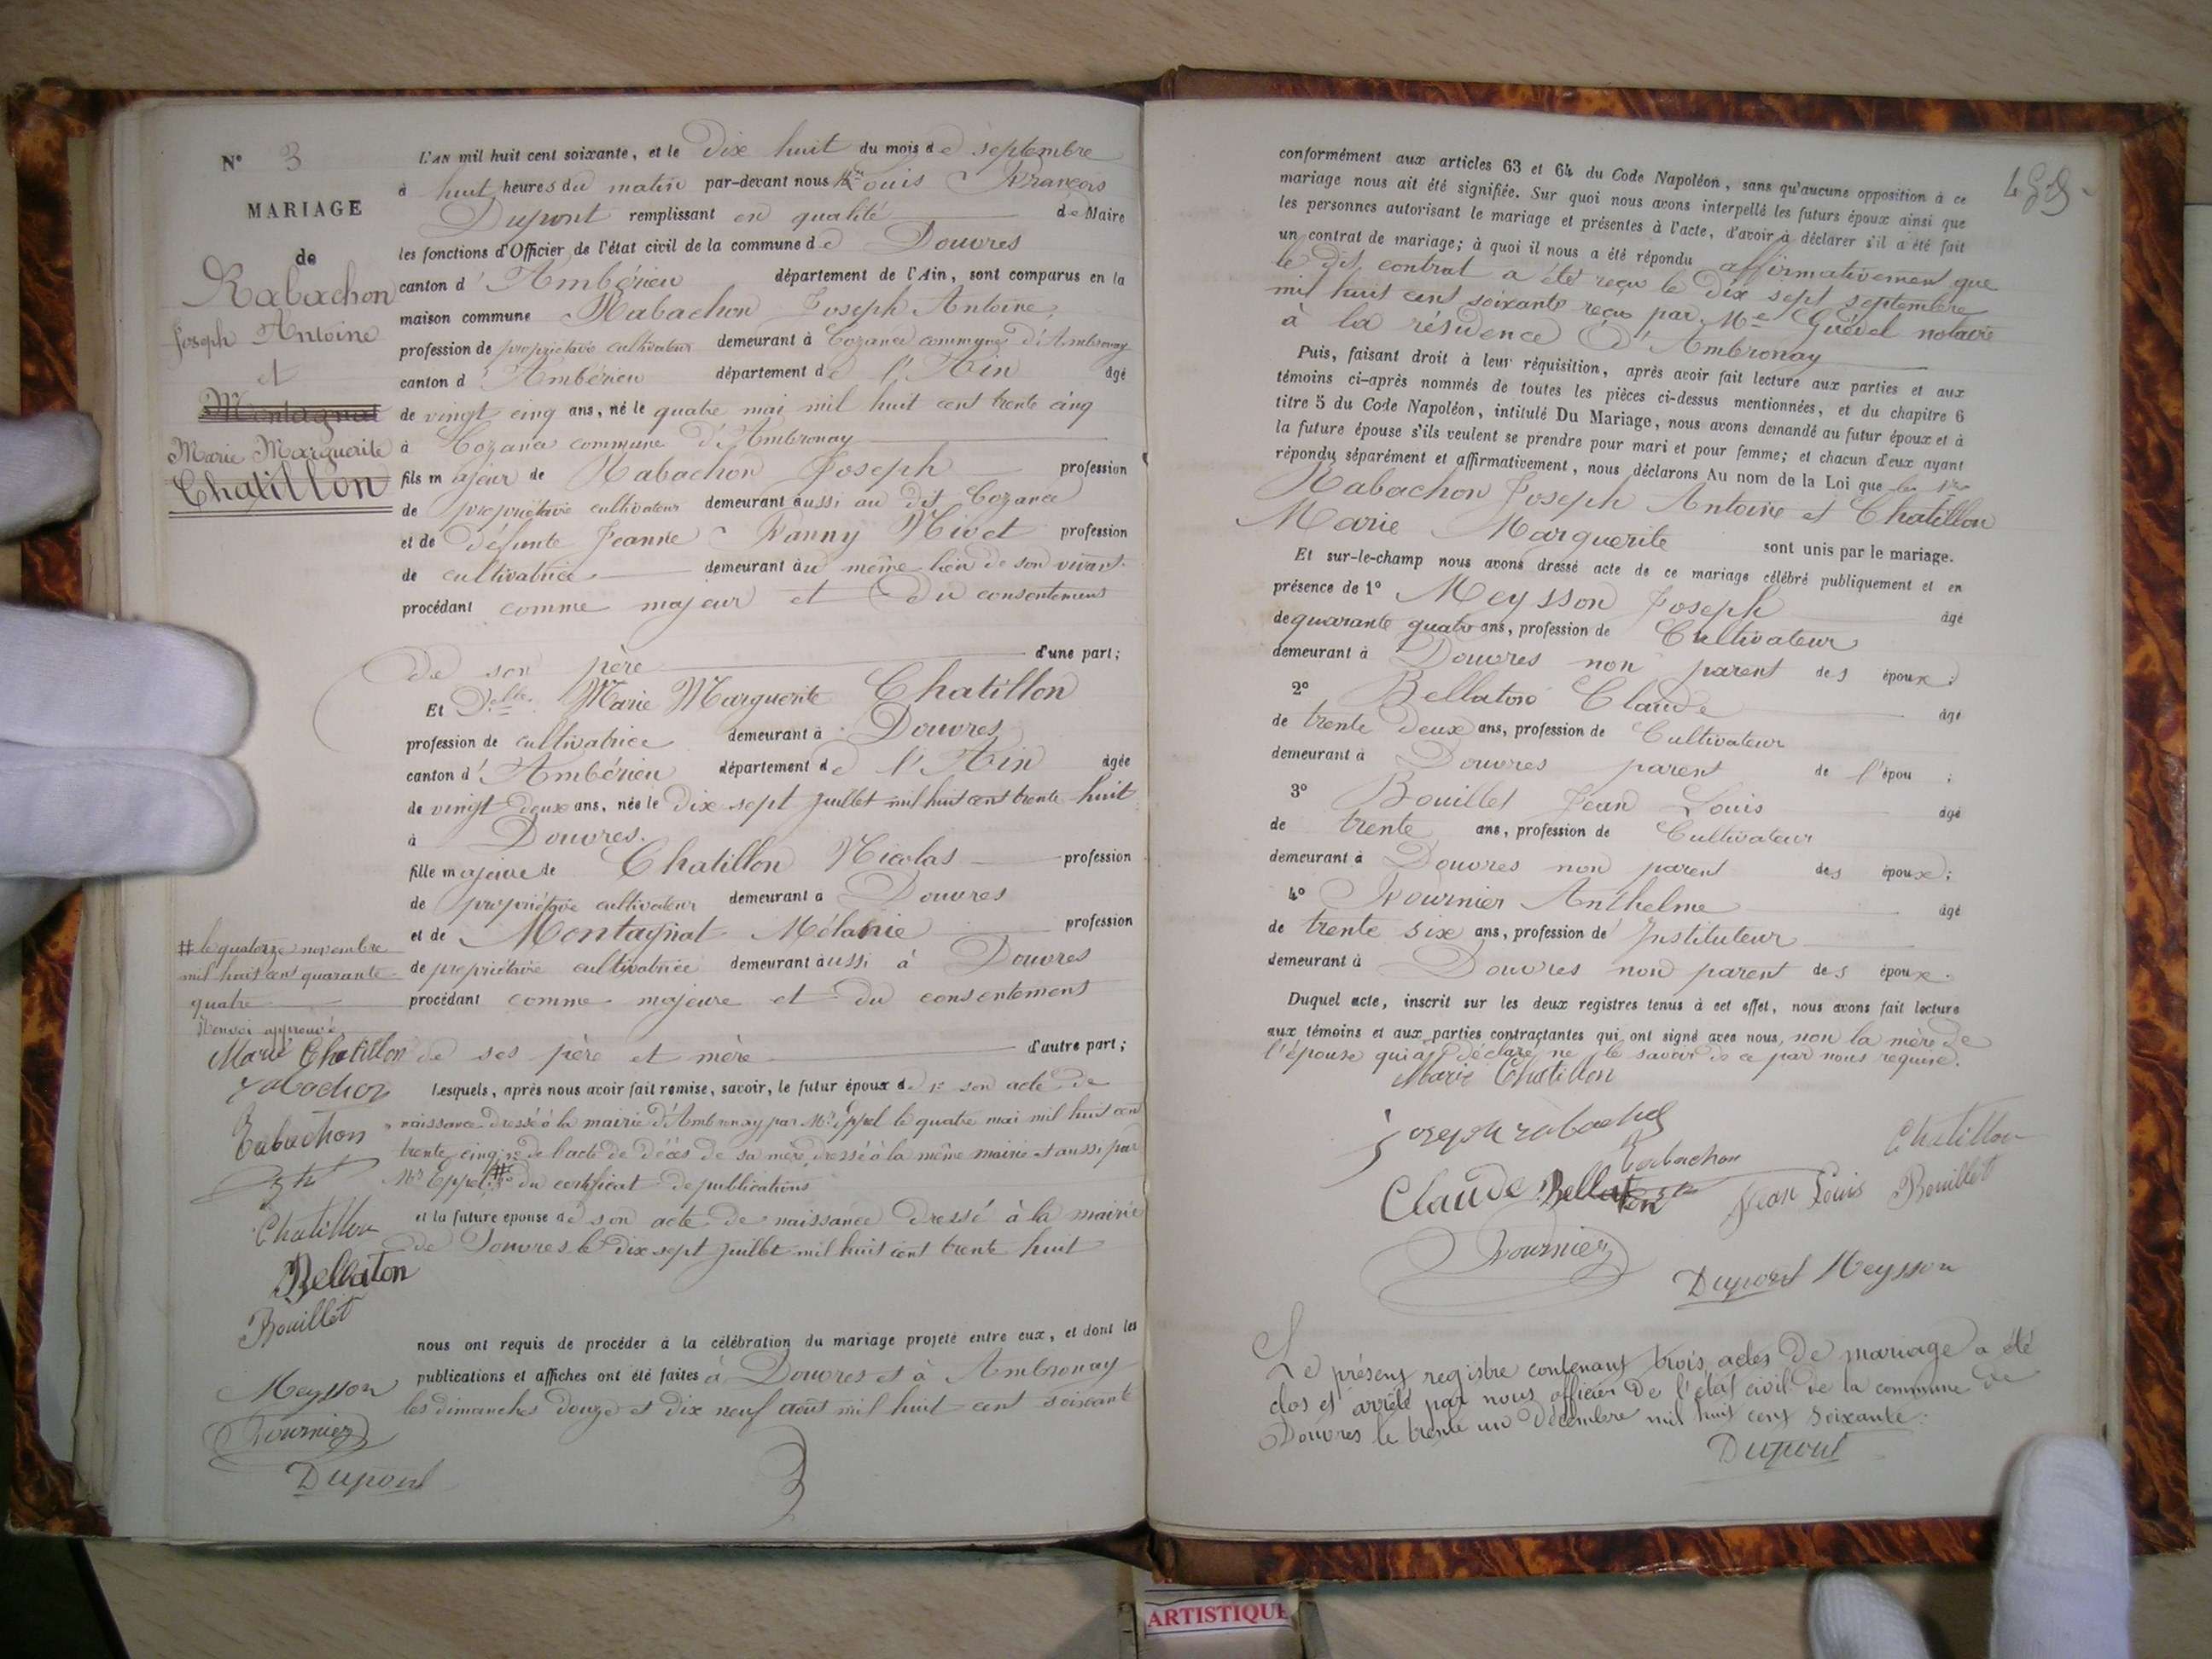 N° 3
MARIAGE
de
Rabachon
Joseph Antoine
et
Montagnat
Marie Marguerite
Chatillon
L'AN mil huit cent soixante, et le dix huit du mois de septembre
à huit heures du matin par-devant nous Louis François
Dupont remplissant en qualité de Maire
les fonctions d'Officier de l'état civil de la commune de Douvres
canton d'Ambérieu département de l'Ain, sont comparus en la
maison commune Rabachon Joseph Antoine,
profession de propriétaire cultivateur demeurant à Cozance commune d'Ambronay
canton d'Ambérieu département de l'Ain âgé
de vingt cinq ans, né le quatre mai mil huit cent trente cinq
à Cozance commune d'Ambronay
fils majeur de Rabachon Joseph profession
de propriétaire cultivateur demeurant aussi au dit Cozance
et de défunte Jeanne Fanny Nivet profession
de cultivatrice demeurant au même lieu de son vivant.
procédant comme majeur et du consentement
de son père d'une part;
Et Delle Marie Marguerite Chatillon
profession de cultivatrice demeurant à Douvres
canton d'Ambérieu département de l'Ain âgée
de vingt deux ans, née le dix sept juillet mil huit cent trente huit
à Douvres.
fille majeure de Chatillon Nicolas profession
de propriétaire cultivateur demeurant a Douvres
et de Montagnat Mélanie profession
de propriétaire cultivatrice demeurant aussi à Douvres
procédant comme majeure et du consentement
de ses père et mère d'autre part;
# le quatorze novembre
mil huit cent quarante
quatre
Renvoi approuvé
Marie Chatillon
rabachon
Rabachon
Chatillon
Bellaton
Bouillet
Meysson
Fournier
Dupont
Lesquels, après nous avoir fait remise, savoir, le futur époux de 1° son acte de
naissance dressé à la mairie d'Ambronay par Mr Eppel le quatre mai mil huit cent
trente cinq; 2° de l'acte de décès de sa mère, dressé à la même mairie et aussi par
Mr Eppel # 3° du certificat de publications
et la future épouse de son acte de naissance dressé à la mairie
de Douvres le dix sept juillet mil huit cent trente huit
nous ont requis de procéder à la célébration du mariage projeté entre eux, et dont les
publications et affiches ont été faites à Douvres et à Ambronay
les dimanches douze et dix neuf août mil huit cent soixante
conformément aux articles 63 et 64 du Code Napoléon, sans qu'aucune opposition à ce
mariage nous ait été signifiée. Sur quoi nous avons interpellé les futurs époux ainsi que
les personnes autorisant le mariage et présentes à l'acte, d'avoir à déclarer s'il a été fait
un contrat de mariage; à quoi il nous a été répondu affirmativement que
le dit contrat a été reçu le dix sept septembre
mil huit cent soixante reçu par Me Guédel notaire
à la résidence d'Ambronay
Puis, faisant droit à leur réquisition, après avoir fait lecture aux parties et aux
témoins ci-après nommés de toutes les pièces ci-dessus mentionnées, et du chapitre 6
titre 5 du Code Napoléon, intitulé Du Mariage, nous avons demandé au futur époux et à
la future épouse s'ils veulent se prendre pour mari et pour femme; et chacun d'eux ayant
répondu séparément et affirmativement, nous déclarons Au nom de la Loi que
Rabachon Joseph Antoine et Chatillon
Marie Marguerite sont unis par le mariage.
Et sur-le-champ nous avons dressé acte de ce mariage célébré publiquement et en
présence de 1° Meysson Joseph âgé
de quarante quatre ans, profession de Cultivateur
demeurant à Douvres non parent des époux;
2° Bellaton Claude âgé
de trente deux ans, profession de Cultivateur
demeurant à Douvres parent de l'épou ;
3° Bouillet Jean Louis âgé
de trente ans, profession de Cultivateur
demeurant à Douvres non parent des époux;
4° Fournier Anthelme âgé
de trente six ans, profession de Instituteur
demeurant à Douvres non parent des époux.
Duquel acte, inscrit sur les deux registres tenus à cet effet, nous avons fait lecture
aux témoins et aux parties contractantes qui ont signé avec nous, non la mère de
l'épouse qui a déclaré ne le savoir de ce par nous requise.
Marie Chatillon
joseph rabachon
Rabachon
Chatillon
Claude Bellaton
Jean Louis Bouillet
Fournier
Dupont Meysson
Le présent registre contenant trois actes de mariage a été
clos et arrêté par nous officier de l'état civil de la commune de
Douvres le trente un décembre mil huit cent soixante.
Dupont
ARTISTIQUE